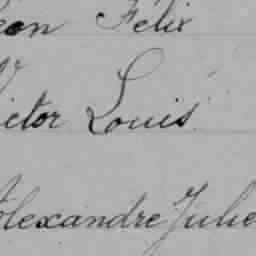 Léon Félix
Victor Louis
Alexandre Julie